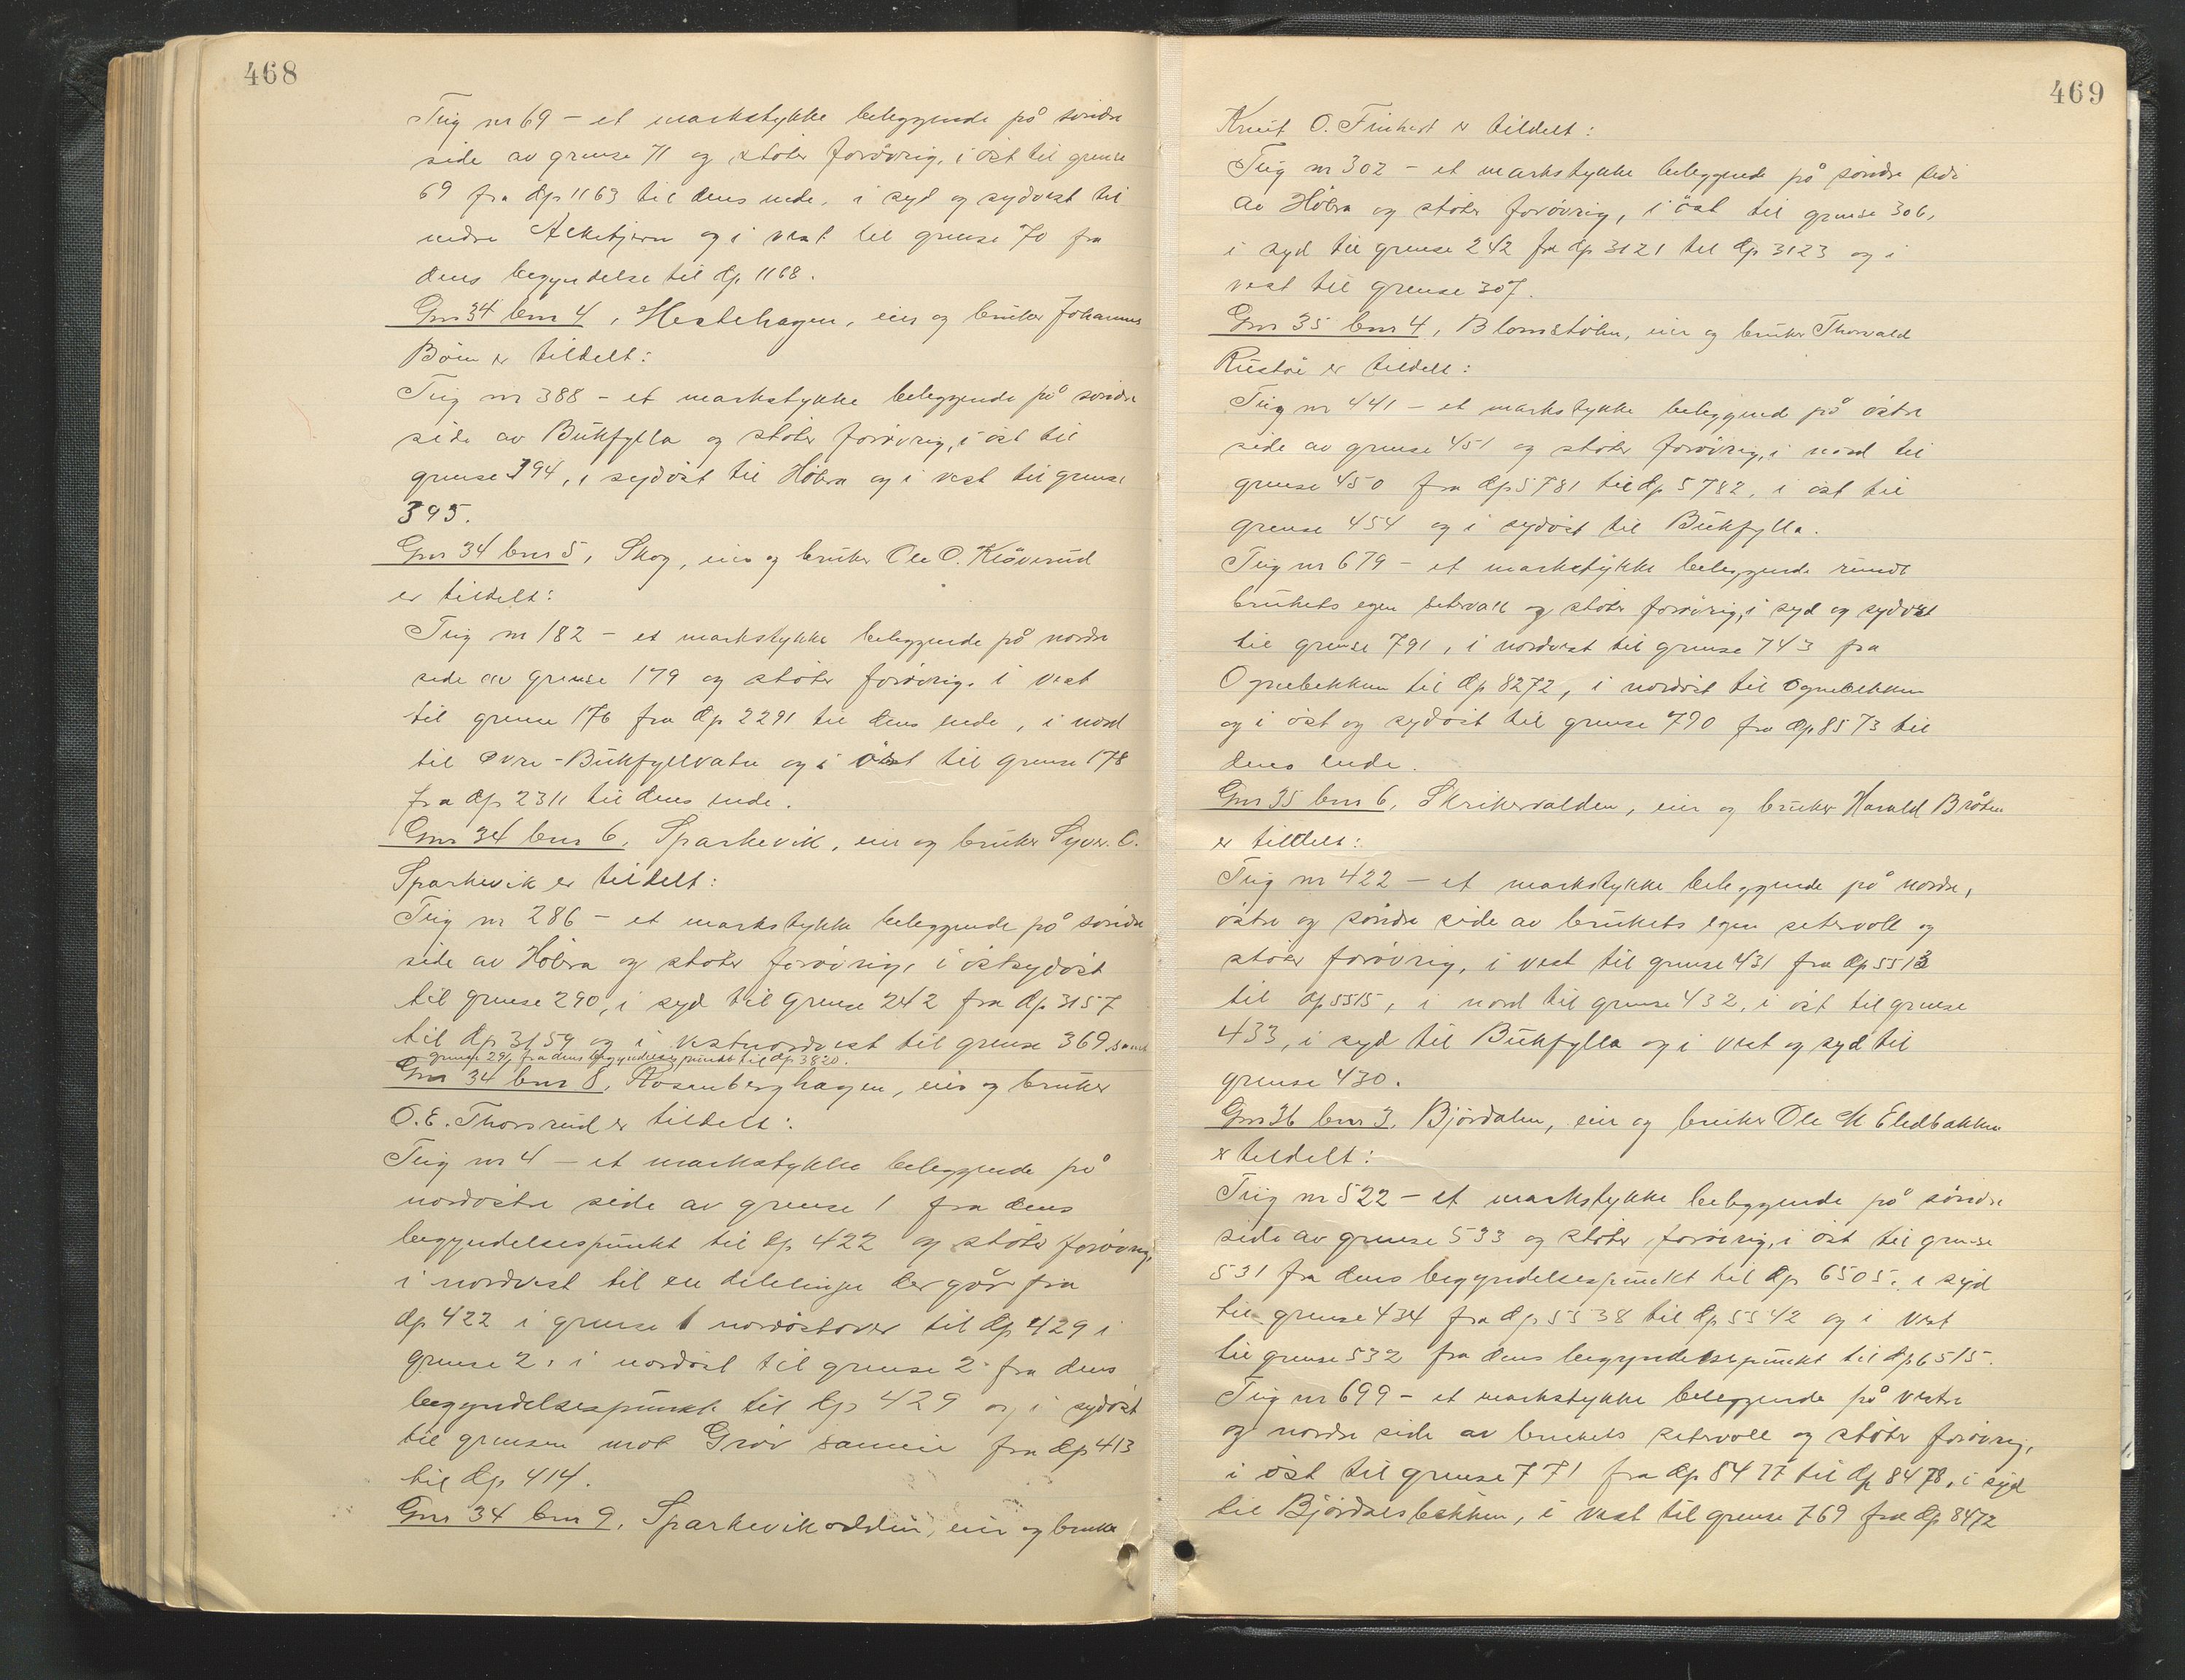 468
Teig nr 69 – et markstykke beleggende på søndre
side av grense 71 og støter forøvrig, i øst til grense
69 fra dp 1163 til dens ende, i syd og sydvest til
nedre Alketjern og i vest til grense 70 fra
dens begyndelse til dp 1168.
Gnr 34 bnr 4, Hestehagen, eier og bruker Johannes
Böen er tildelt:
Teig nr 388 – et markstykke beleggende på søndre
side av Bukfylla og støter forøvrig, i øst til
grense 394, i sydøst til Høbra og i vest til grense
395.
Gnr 34 bnr 5, Skog, eier og bruker Ole O. Kløverud
er tildelt:
Teig nr 182 – et markstykke beleggende på nordre
side av grense 179 og støter forøvrig, i vest
til grense 176 fra dp 2291 til dens ende, i nord
til Øvre-Bukfyllvatn og i øst til grense 178
fra dp 2311 til dens ende.
Gnr 34 bnr 6, Sparkevik, eier og bruker Syver O.
Sparkevik er tildelt:
Teig nr 286 – et markstykke beleggende på søndre
side av Høbra og støter forøvrig, i østsydøst
til grense 290, i syd til grense 242 fra dp 3157
til dp 3159 og i vestnordvest til grense 369 samt
grense 291 fra dens begyndelsespunkt til dp 3820.
Gnr 34 bnr 8, Rosenberghagen, eier og bruker
O. E. Thorsrud er tildelt:
Teig nr 4 – et markstykke beleggende på
nordøstre side av grense 1 fra dens
begyndelsespunkt til dp 422 og støter forøvrig,
i nordvest til en delelinje der går fra
dp 422 i grense 1 nordøstover til dp 429 i
grense 2, i nordøst til grense 2 fra dens
begyndelsespunkt til dp 429 og i sydøst
til grensen mot Grøv sameie fra dp 413
til dp 414.
Gnr 34 bnr 9, Sparkevikodden, eier og bruker
469
Knut O. Finhert er tildelt:
Teig nr 302 – et markstykke beleggende på søndre side
av Høbra og støter forøvrig, i øst til grense 306,
i syd til grense 242 fra dp 3121 til dp 3123 og i
vest til grense 307.
Gnr 35 bnr 4, Blomstølen, eier og bruker Thorvald
Rustøi er tildelt:
Teig nr 441 – et markstykke beleggend på østre
side av grense 451 og støter forøvrig, i nord til
grense 450 fra dp 5781 til dp 5782, i øst til
grense 454 og i sydøst til Bukfylla.
Teig nr 679 – et markstykke beleggende rundt
brukets egen setervoll og støter forøvrig, i syd og sydvest
til grense 791, i nordvest til grense 743 fra
Ognebekken til dp 8272, i nordøst til Ognebekken
og i øst og sydøst til grense 790 fra dp 8573 til
dens ende.
Gnr 35 bnr 6, Skrikervolden, eier og bruker Harald Bråten
er tildelt:
Teig nr 422 – et markstykke beleggende på nordre,
østre og søndre side av brukets egen setervoll og
støter forøvrig, i vest til grense 431 fra dp 5513
til dp 5515, i nord til grense 432, i øst til grense
433, i syd til Bukfylla og i vest og syd til
grense 430.
Gnr 36 bnr 3, Björdalen, eier og bruker Ole K Eledbakken
er tildelt:
Teig nr 522 – et markstykke beleggende på søndre
side av grense 533 og støter forøvrig, i øst til grense
531 fra dens begyndelsespunkt til dp 6505. i syd
til grense 434 fra dp 5538 til dp 5542 og i vest
til grense 532 fra dens begyndelsespunkt til dp 6515.
Teig nr 699 – et markstykke beleggende på vestre
og nordre side av brukets setervoll og støter forøvrig,
i øst til grense 771 fra dp 8477 til dp 8478, i syd
til Björdalsbekken, i vest til grense 769 fra dp 8472